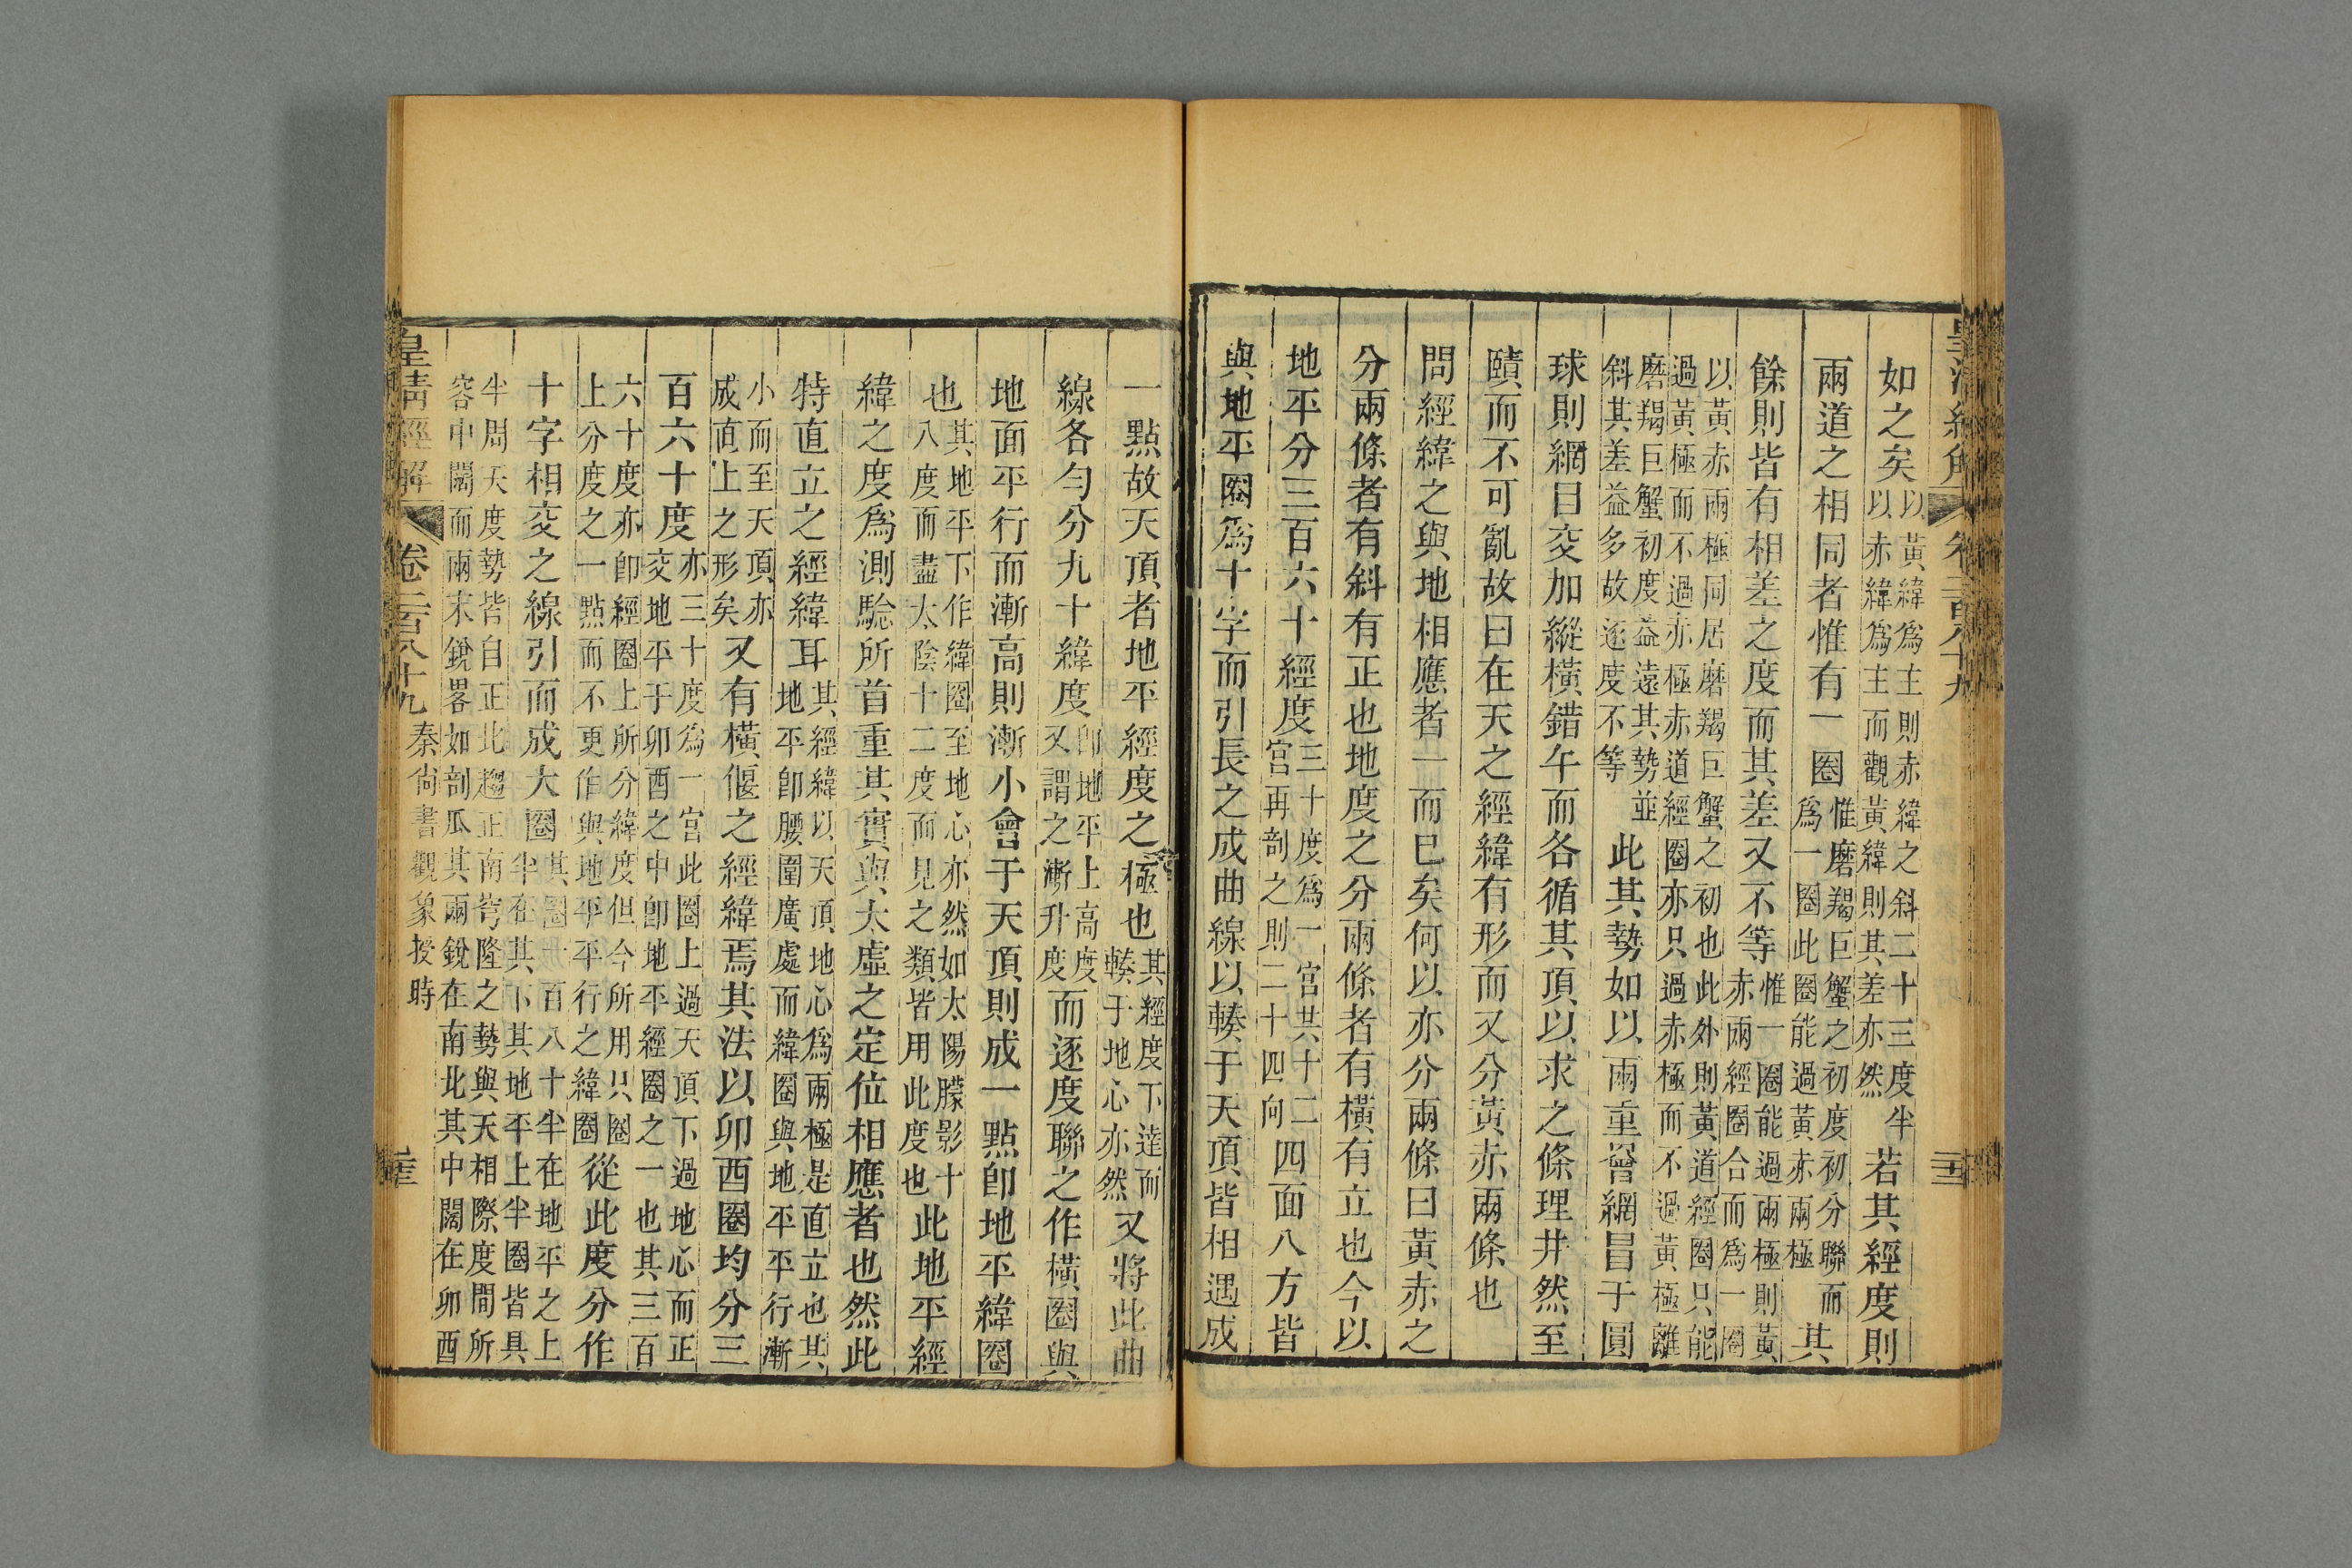 皇清經解　卷二百八十九
如之矣以黃緯爲主則赤緯之斜二十三度半以赤緯爲主而觀黃緯則其差亦然若其經度則
兩道之相同者惟有一圈惟磨羯巨蟹之初度初分聯而爲一圈此圈能過黃赤兩極其
餘則皆有相差之度而其差又不等惟一圈能過兩極則黃赤兩經圈合而爲一圈
以黃赤兩極同居磨羯巨蟹之初也此外則黃道經圈只能
過黃極而不過赤極赤道經圈亦只過赤極而不過黃極離
磨羯巨蟹初度益遠其勢並斜其差益多故逐度不等此其勢如以兩重罾網冒于圓
球則網目交加縱橫錯午而各循其頂以求之條理井然至
賾而不可亂故曰在天之經緯有形而又分黃赤兩條也
問經緯之與地相應者一而巳矣何以亦分兩條曰黃赤之
分兩條者有斜有正也地度之分兩條者有橫有立也今以
地平分三百六十經度三十度爲一宮共十二宮再剖之則二十四向四面八方皆
與地平圈爲十字而引長之成曲線以輳于天頂皆相遇成
一點故天頂者地平經度之極也其經度下達而輳于地心亦然又將此曲
線各勻分九十緯度卽地平上高度又謂之漸升度而逐度聯之作橫圈與
地面平行而漸高則漸小會于天頂則成一點卽地平緯圈
也其地平下作緯圈至地心亦然如太陽朦影十八度而盡太陰十二度而見之類皆用此度也此地平經
緯之度爲測騐所首重其實與太虛之定位相應者也然此
特直立之經緯耳其經緯以天頂地心爲兩極是直立也其地平卽腰圍廣處而緯圈與地平平行漸
小而至天頂亦成直上之形矣又有橫偃之經緯焉其法以卯酉圈均分三
百六十度亦三十度爲一宮此圈上過天頂下過地心而正交地平于卯酉之中卽地平經圈之一也其三百
六十度亦卽經圈上所分緯度但今所用只圈上分度之一點而不更作與地平平行之緯圈從此度分作
十字相交之線引而成大圈其圈一百八十半在地平之上半在其下其地平上半圈皆具
半周天度勢皆自正北趨正南穹隆之勢與天相際度間所
容中闊而兩末銳畧如剖瓜其兩銳在南北其中闊在卯酉
皇清經解　卷二百八十九　秦尙書觀象授時